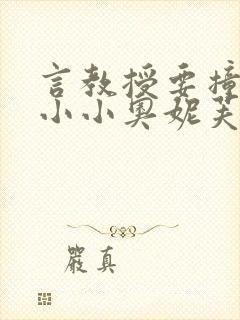 言教授要撞
小小奥妮芙
嚴真